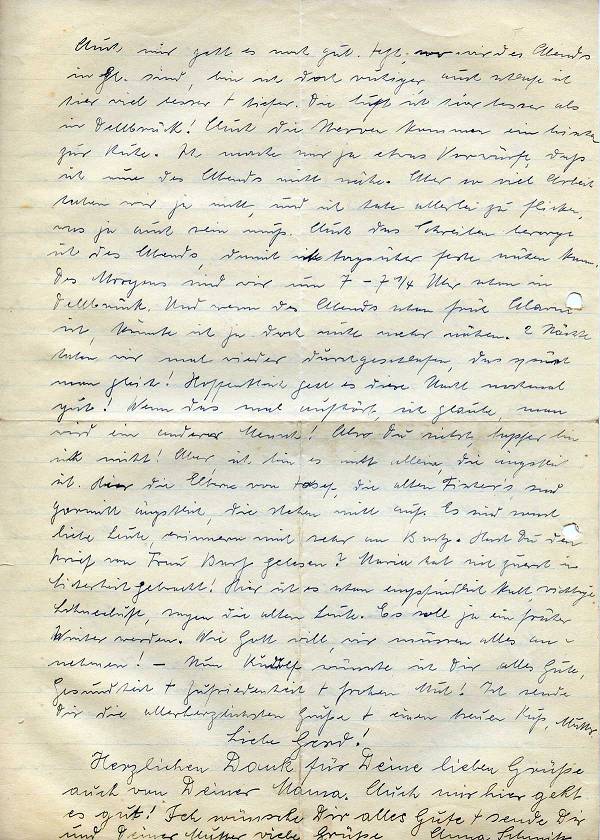 Auch mir geht es noch gut. Jetzt, wo wir des Abends
in Gl. sind, bin ich doch ruhiger auch schlafe ich
hier viel besser + tiefer. Die Luft ist hier besser als
in Dellbrück! Auch die Nerven kommen ein bisschen
zur Ruhe. Ich mache mir ja etwas Vorwürfe, daß
ich nun des Abends nicht nähe. Aber so viel Arbeit
haben wir ja nicht, und ich habe allerlei zu flicken,
was ja auch sein muß. Auch das Schreiben besorge
ich des Abends, damit ich tagsüber feste nähen kann.
Des Morgens sind wir um 7 - 7 1/4 Uhr schon in
Dellbrück. Und wenn des Abends schon früh Alarm
ist, könnte ich ja doch nicht mehr nähen. 2 Nächte
haben wir mal wieder durchgeschlafen, das spürt
man gleich! Hoffentlich geht es diese Nacht nochmal
gut! Wenn das mal aufhört, ich glaube, man
wird ein anderer Mensch! Also Du siehst, tapfer bin
ich nicht! Aber ich bin es nicht allein, die ängstlich
ist. Hier die Eltern von Josef, die alten sind
garnicht ängstlich, die stehen nicht auf. Es sind sonst
liebe Leute, erinnern mich sehr an Hast Du den
Brief von Frau gelesen? Maria hat sich zuerst in
Sicherheit gebracht! Hier ist es schon empfindlich kalt richtige
Schneeluft, sagen die alten Leute. Es soll ja ein früher
Winter werden. Wie Gott will, wir müssen alles an-
nehmen! - Nun wünsche ich Dir alles Gute,
Gesundheit + Zufriedenheit + frohen Mut! Ich sende
Dir die allerherzlichsten Grüße + einen treuen Kuß, Mutter.
Liebe Gerd!
Herzlichen Dank für Deine lieben Grüße
auch von Deiner Mama. Auch mir hier geht
es gut! Ich wünsche Dir alles Gute + sende Dir
und Deiner Mutter viele Grüße Anna